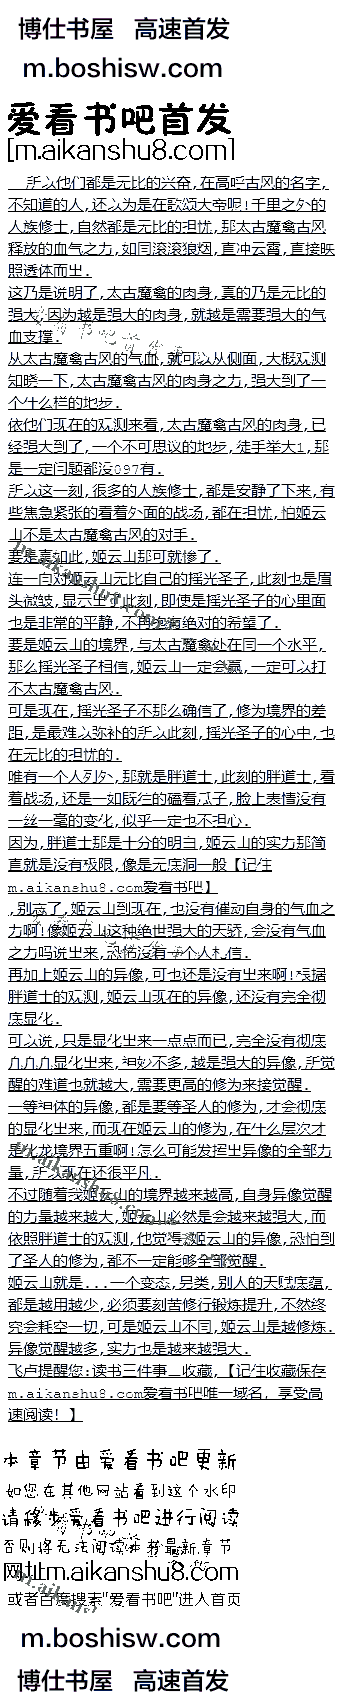 博仕书屋 高速首发
m.boshisw.com
爱看书吧首发
[m.aikanshu8.com]
所以他们都是无比的兴奋,在高呼古风的名字,
不知道的人,还以为是在歌颂大帝呢!千里之外的
人族修士,自然都是无比的担忧,那太古魔禽古风
释放的血气之力,如同滚滚狼烟,直冲云霄,直接映
照透体而出.
这乃是说明了,太古魔禽的肉身,真的乃是无比的
强大,因为越是强大的肉身,就越是需要强大的气
血支撑.
从太古魔禽古风的气血,就可以从侧面,大概观测
知晓一下,太古魔禽古风的肉身之力,强大到了一
个什么样的地步.
依他们现在的观测来看,太古魔禽古风的肉身,已
经强大到了,一个不可思议的地步,徒手举大1,那
是一定问题都没097有.
所以这一刻,很多的人族修士,都是安静了下来,有
些焦急紧张的看着外面的战场,都在担忧,怕姬云
山不是太古魔禽古风的对手.
要是真如此,姬云山那可就惨了.
连一向对姬云山无比自己的摇光圣子,此刻也是眉
头微皱,显示出了此刻,即使是摇光圣子的心里面
也是非常的平静,不再抱有绝对的希望了.
要是姬云山的境界,与太古魔禽处在同一个水平,
那么摇光圣子相信,姬云山一定会赢,一定可以打
不太古魔禽古风.
可是现在,摇光圣子不那么确信了,修为境界的差
距,是最难以弥补的所以此刻,摇光圣子的心中,也
在无比的担忧的.
唯有一个人列外,那就是胖道士,此刻的胖道士,看
着战场,还是一如既往的磕着瓜子,脸上表情没有
一丝一毫的变化,似乎一定也不担心.
因为,胖道士那是十分的明白,姬云山的实力那简
直就是没有极限,像是无底洞一般【记住
m.aikanshu8.com爱看书吧】
,别忘了,姬云山到现在,也没有催动自身的气血之
力啊!像姬云山这种绝世强大的天骄,会没有气血
之力吗说出来,恐怕没有一个人相信.
再加上姬云山的异像,可也还是没有出来啊!根据
胖道士的观测,姬云山现在的异像,还没有完全彻
底显化.
可以说,只是显化出来一点点而已,完全没有彻底
几几几显化出来,神妙不多,越是强大的异像,所觉
醒的难道也就越大,需要更高的修为来接觉醒.
一等神体的异像,都是要等圣人的修为,才会彻底
的显化出来,而现在姬云山的修为,在什么层次才
是化龙境界五重啊!怎么可能发挥出异像的全部力
量,所以现在还很平凡.
不过随着我姬云山的境界越来越高,自身异像觉醒
的力量越来越大,姬云山必然是会越来越强大,而
依照胖道士的观测,他觉得姬云山的异像,恐怕到
了圣人的修为,都不一定能够全部觉醒.
姬云山就是...一个变态,另类,别人的天赋底蕴,
都是越用越少,必须要刻苦修行锻炼提升,不然终
究会耗空一切,可是姬云山不同,姬云山是越修炼.
异像觉醒越多,实力也是越来越强大.
飞卢提醒您:读书三件事二收藏,【记住收藏保存
m.aikanshu8.com爱看书吧唯一域名，享受高
速阅读！】
本章节由爱看书吧更新
如您在其他网站看到这个水印
请移步爱看书吧进行阅读
否则将无法阅读本书最新章节
网址m.aikanshu8.com
或者百度搜索"爱看书吧"进入首页
m.boshisw.com
博仕书屋 高速首发